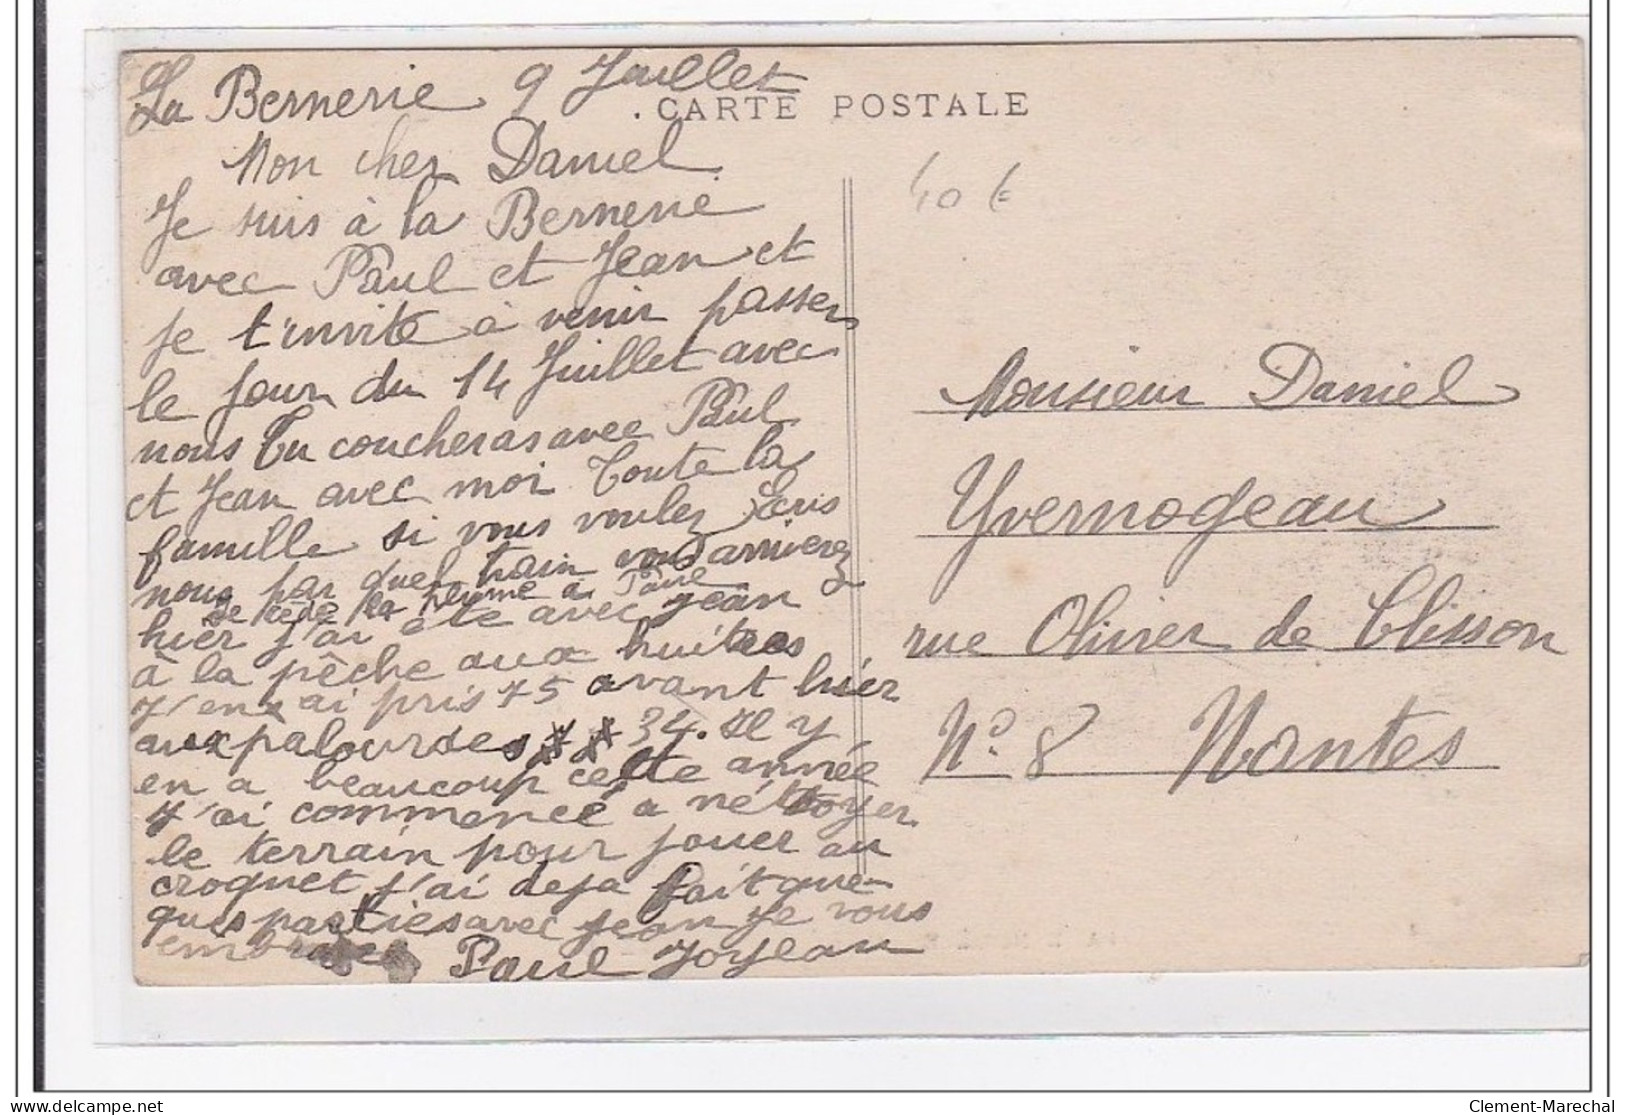 La Bernerie 9 Juillet
CARTE POSTALE
Mon cher Daniel
Je suis à la Bernerie
avec Paul et Jean et
je t'invite à venir passer
le jour du 14 Juillet avec
nous Tu coucheras avec Paul
et Jean avec moi Toute la
famille si vous voulez Ecris
nous par quel train vous arriverez
Je cède la plume à Paul
hier j'ai été avec Jean
à la pêche aux huitres
J'en ai pris 75 avant hier
aux palourdes 34. Il y
en a beaucoup cette année
J'ai commencé a néttoyer
le terrain pour jouer au
croquet j'ai deja fait que
ques parties avec Jean Je vous
embrasse Paul Joyeau
40 €
Monsieur Daniel
Yvernogeau
rue Olivier de Clisson
N° 8 Nantes
Clement-Marechal